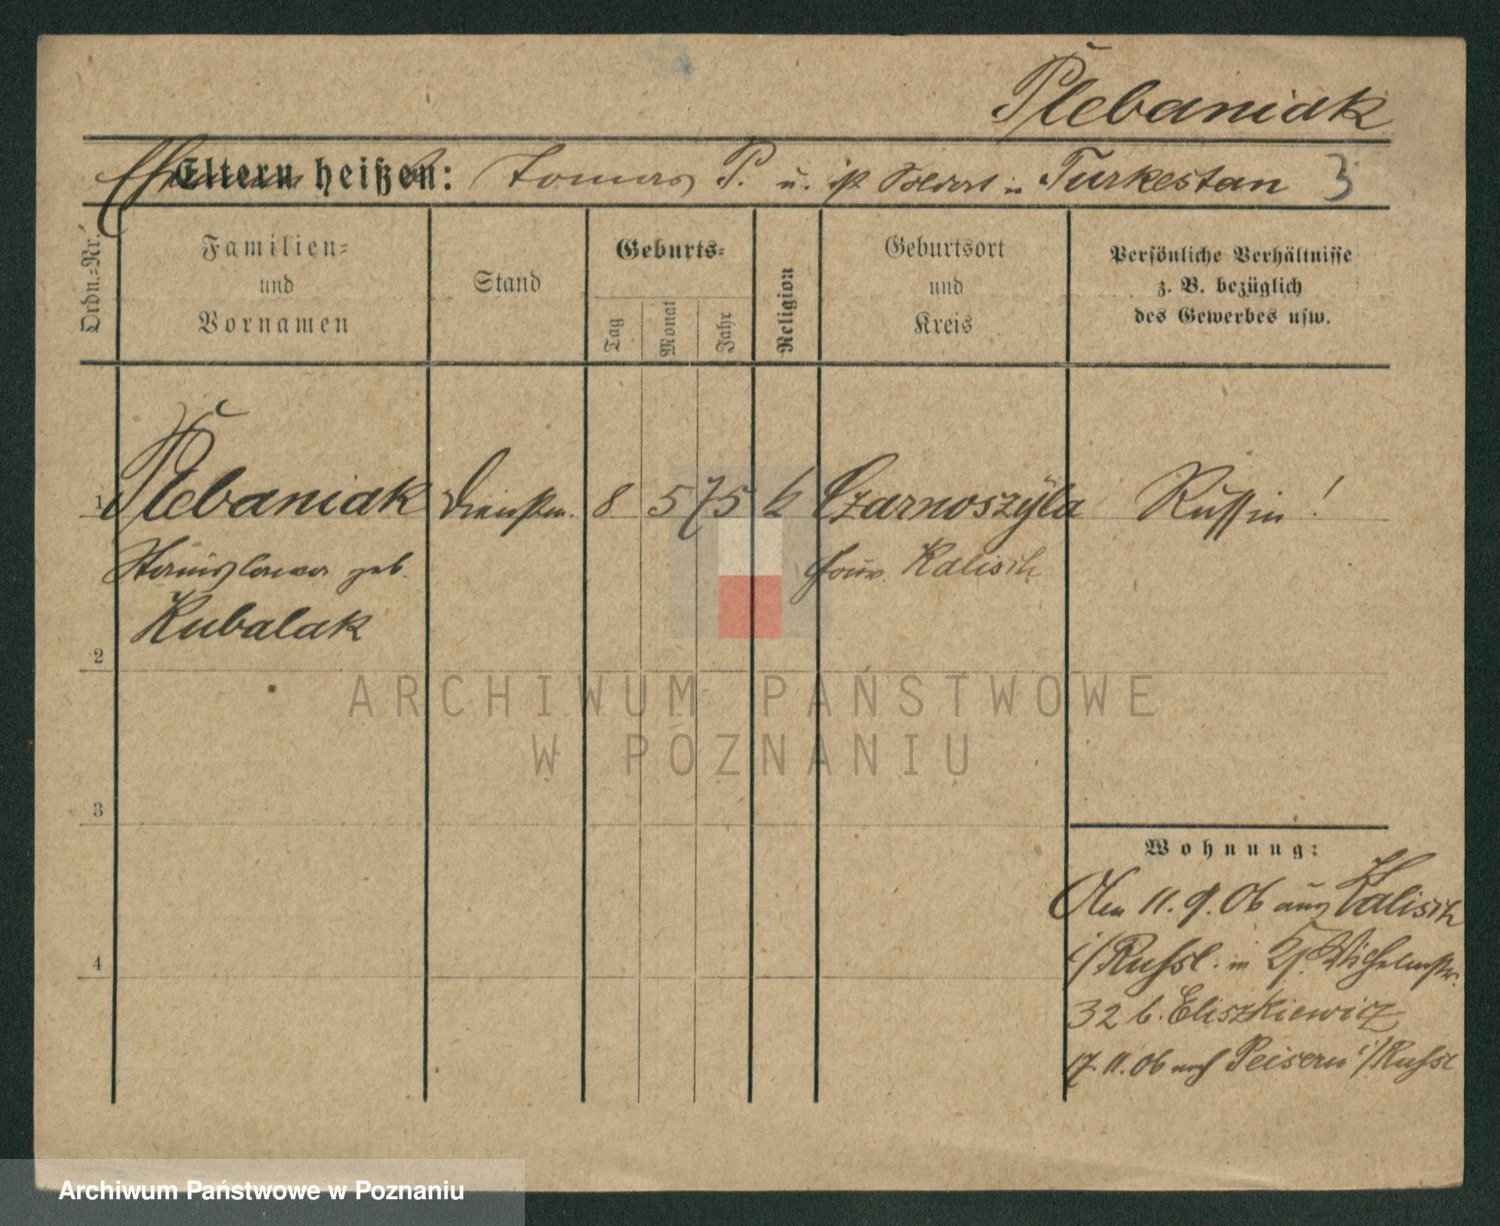 Plebaniak
Eltern heißen: Tomas P. u. ist Soldat in Turkestan 3
Ordn.=Nr.
Familien=
und
Vornamen
Stand
Geburts=
Tag
Monat
Jahr
Religion
Geburtsort
und
Kreis
Persönliche Verhältnisse
z. B. bezüglich
des Gewerbes usw.
1 Plebaniak Dienstm. 8 5 75 k Czarnoszyla Russin!
Stanislawa geb. Gouv. Kalisch
Kubalak
2
3
4
Wohnung:
Am 11.9.06 aus Kalisch
i/Russl. in Wilhelmstr.
32 b. Eliszkiewicz
17.11.06 nach Peisern i/Russl
ARCHIWUM PAŃSTWOWE
W POZNANIU
Archiwum Państwowe w Poznaniu